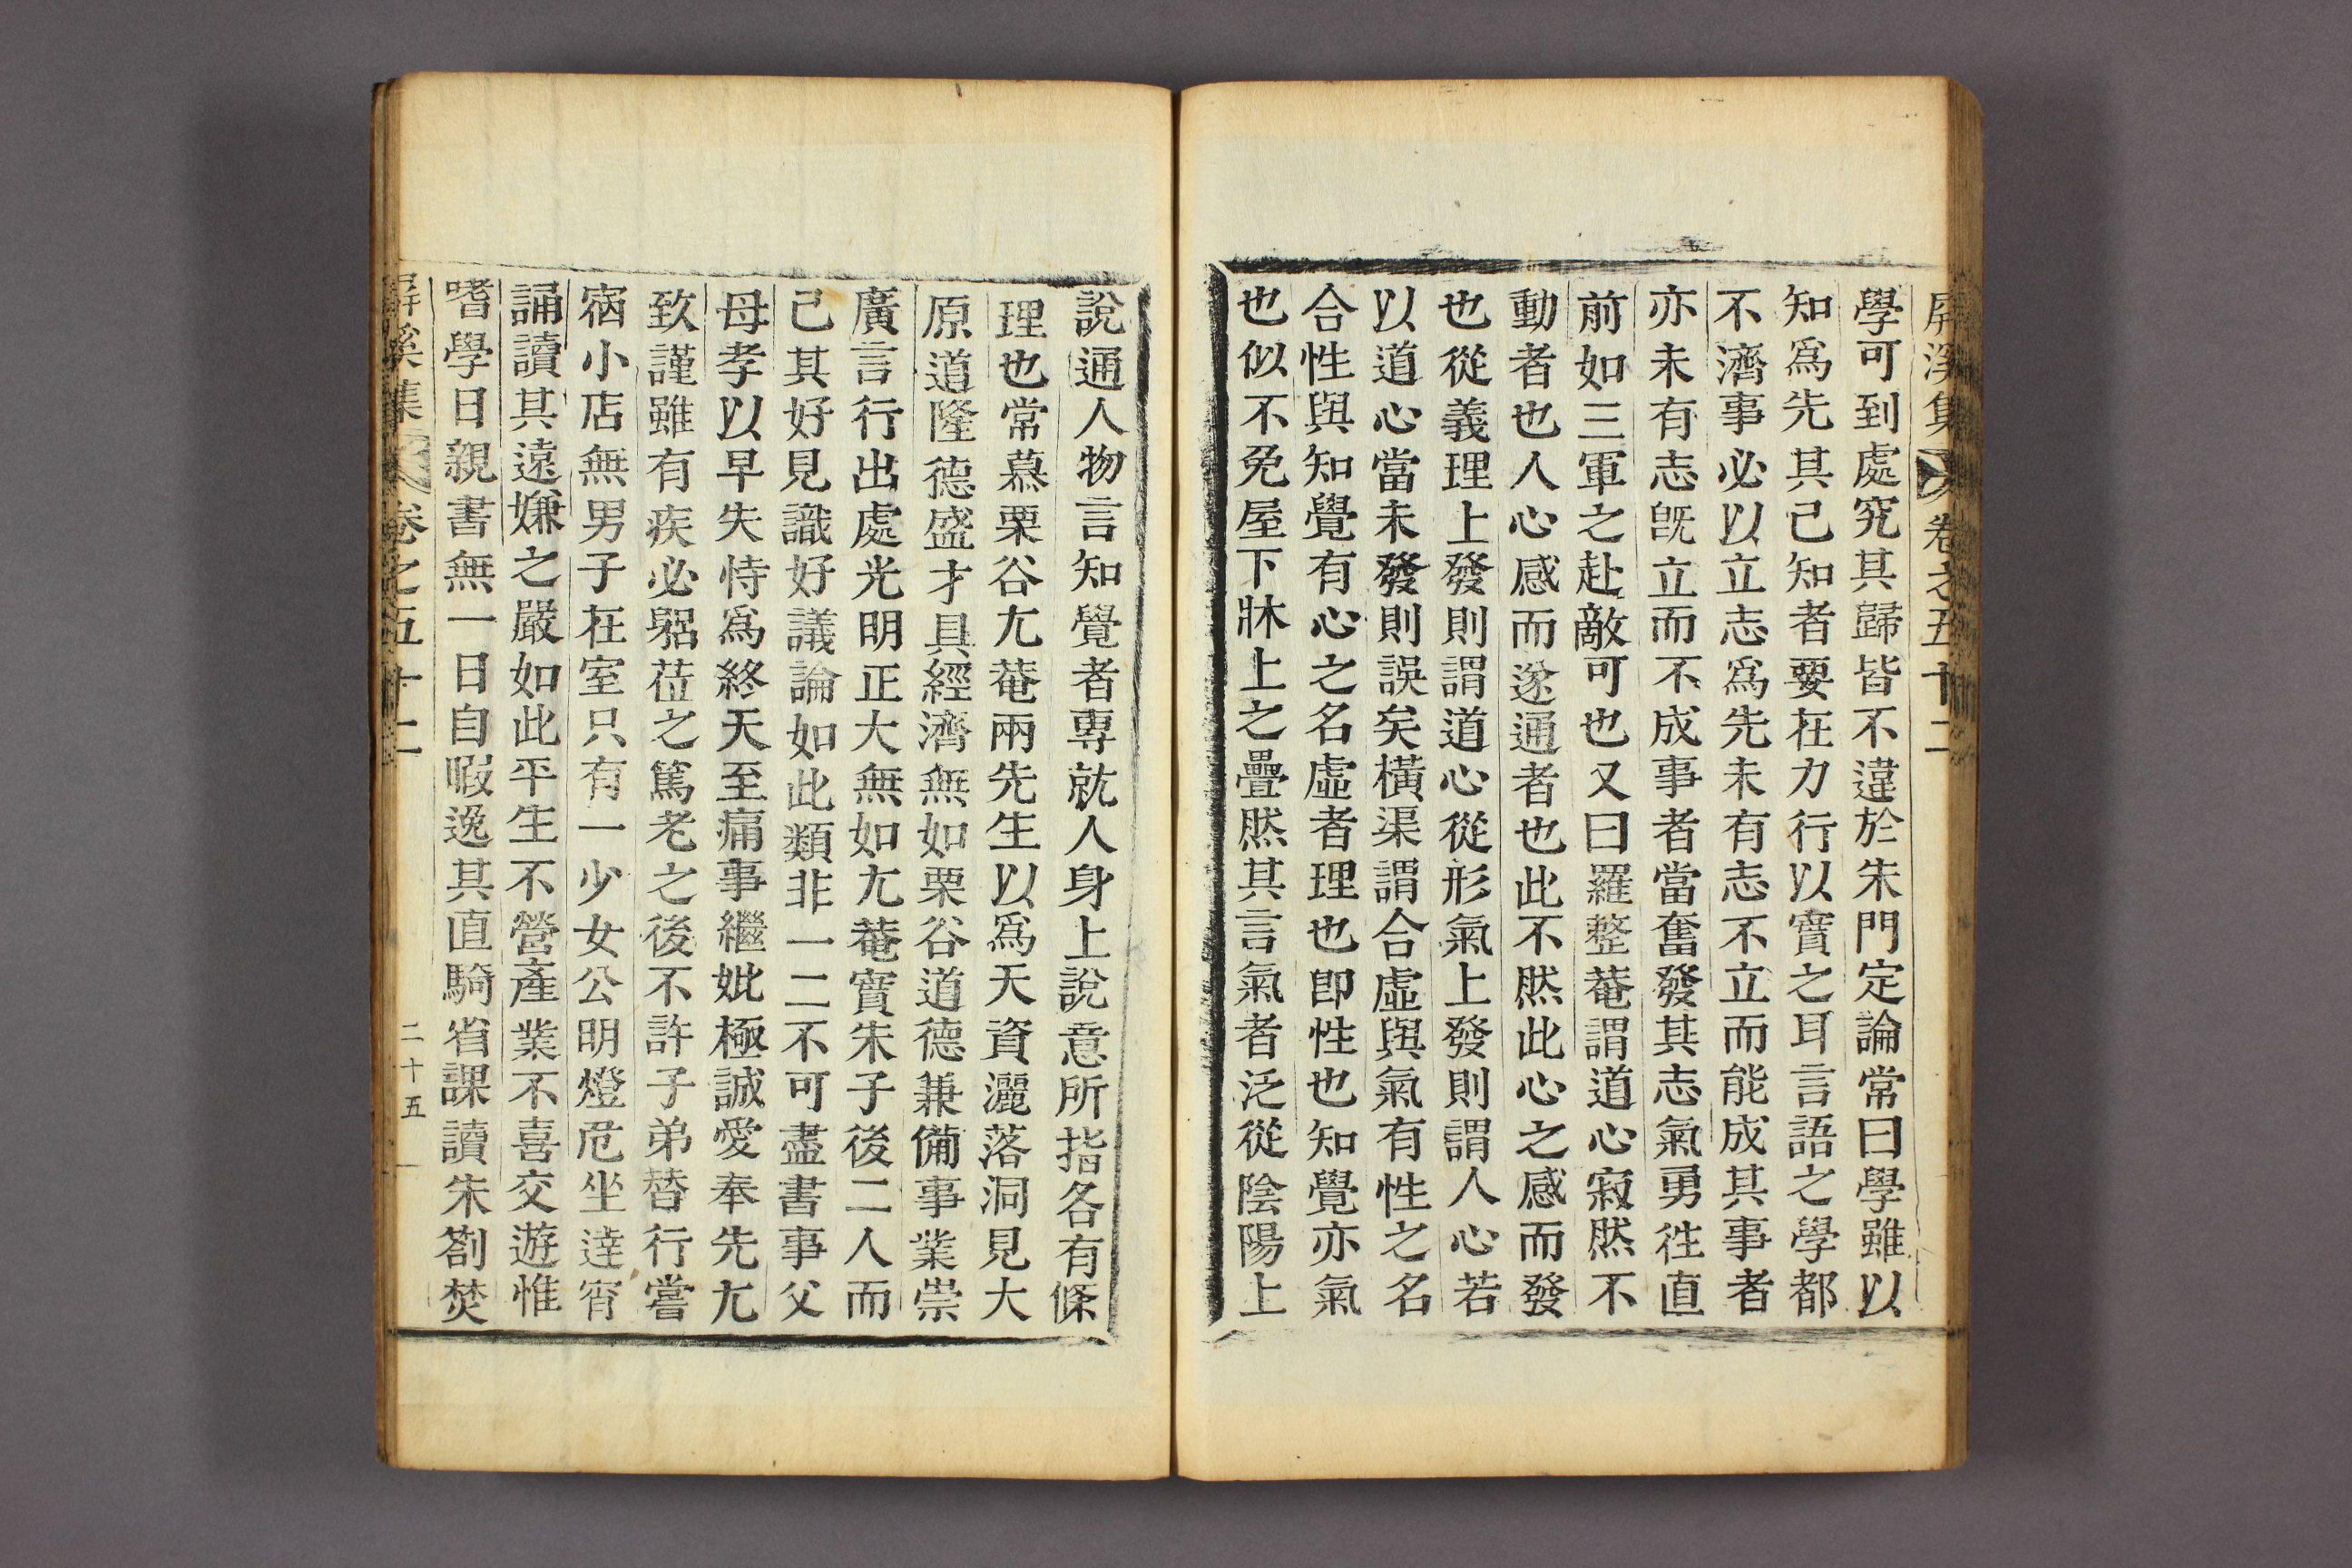 屛溪集 卷之五十二
學可到處究其歸皆不違於朱門定論常曰學雖以
知爲先其己知者要在力行以實之耳言語之學都
不濟事必以立志爲先未有志不立而能成其事者
亦未有志旣立而不成事者當奮發其志氣勇徃直
前如三軍之赴敵可也又曰羅整菴謂道心寂然不
動者也人心感而遂通者也此不然此心之感而發
也從義理上發則謂道心從形氣上發則謂人心若
以道心當未發則誤矣橫渠謂合虛與氣有性之名
合性與知覺有心之名虛者理也卽性也知覺亦氣
也似不免屋下牀上之疊然其言氣者泛從陰陽上
說通人物言知覺者專就人身上說意所指各有條
理也常慕栗谷尤菴兩先生以爲天資灑落洞見大
原道隆德盛才具經濟無如栗谷道德兼備事業崇
廣言行出處光明正大無如尤菴實朱子後二人而
己其好見識好議論如此類非一二不可盡書事父
母孝以早失恃爲終天至痛事繼妣極誠愛奉先尤
致謹雖有疾必躬莅之篤老之後不許子弟替行嘗
宿小店無男子在室只有一少女公明燈危坐達宵
誦讀其遠嫌之嚴如此平生不營產業不喜交遊惟
嗜學日親書無一日自暇逸其直騎省課讀朱劄焚
屛溪集 卷之五十二 二十五